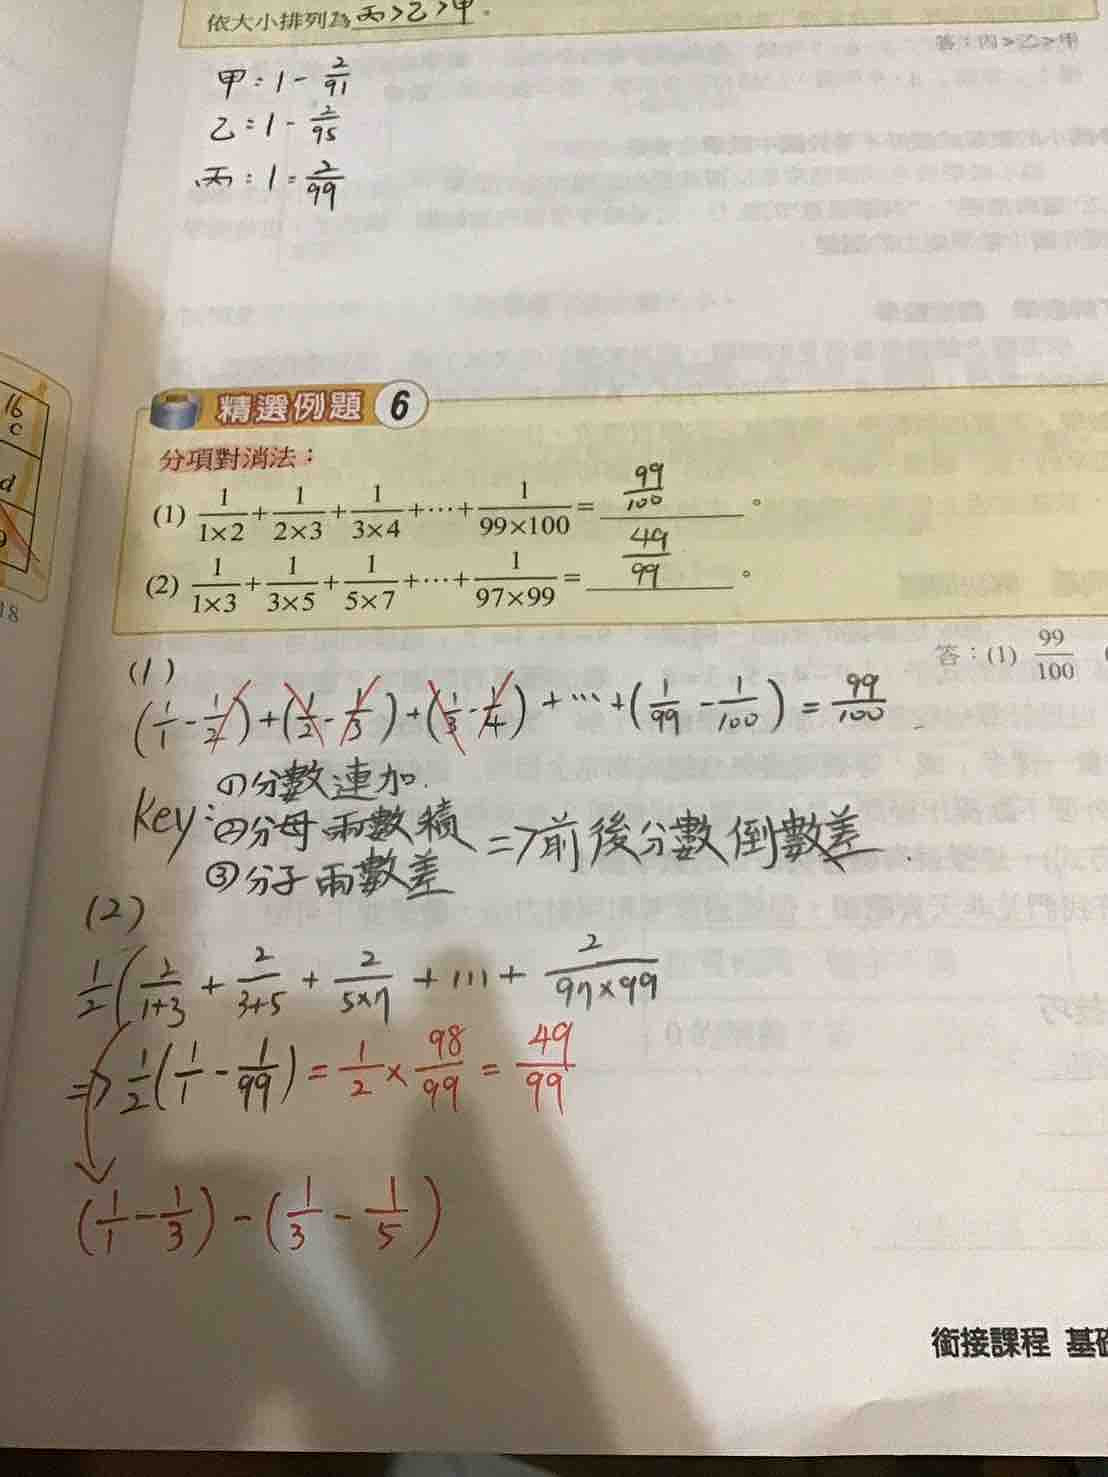 依大小排列為 丙>乙>甲。
甲:1-2/91
乙=1-2/95
丙:1=2/99
16
c
d
18
精選例題 6
分項對消法:
(1) 1/(1×2)+1/(2×3)+1/(3×4)+⋯+1/(99×100)=99/100。
(2) 1/(1×3)+1/(3×5)+1/(5×7)+⋯+1/(97×99)=49/99。
答:(1) 99/100 (
(1)
(1/1-1/2)+(1/2-1/3)+(1/3-1/4)+⋯+(1/99-1/100)=99/100
key:①分數連加.
②分母兩數積 =>前後分數倒數差.
③分子兩數差
(2)
1/2(2/(1+3)+2/(3+5)+2/(5×7)+⋯+2/(97×99)
=>1/2(1/1-1/99)=1/2×98/99=49/99
(1/1-1/3)-(1/3-1/5)
銜接課程 基礎